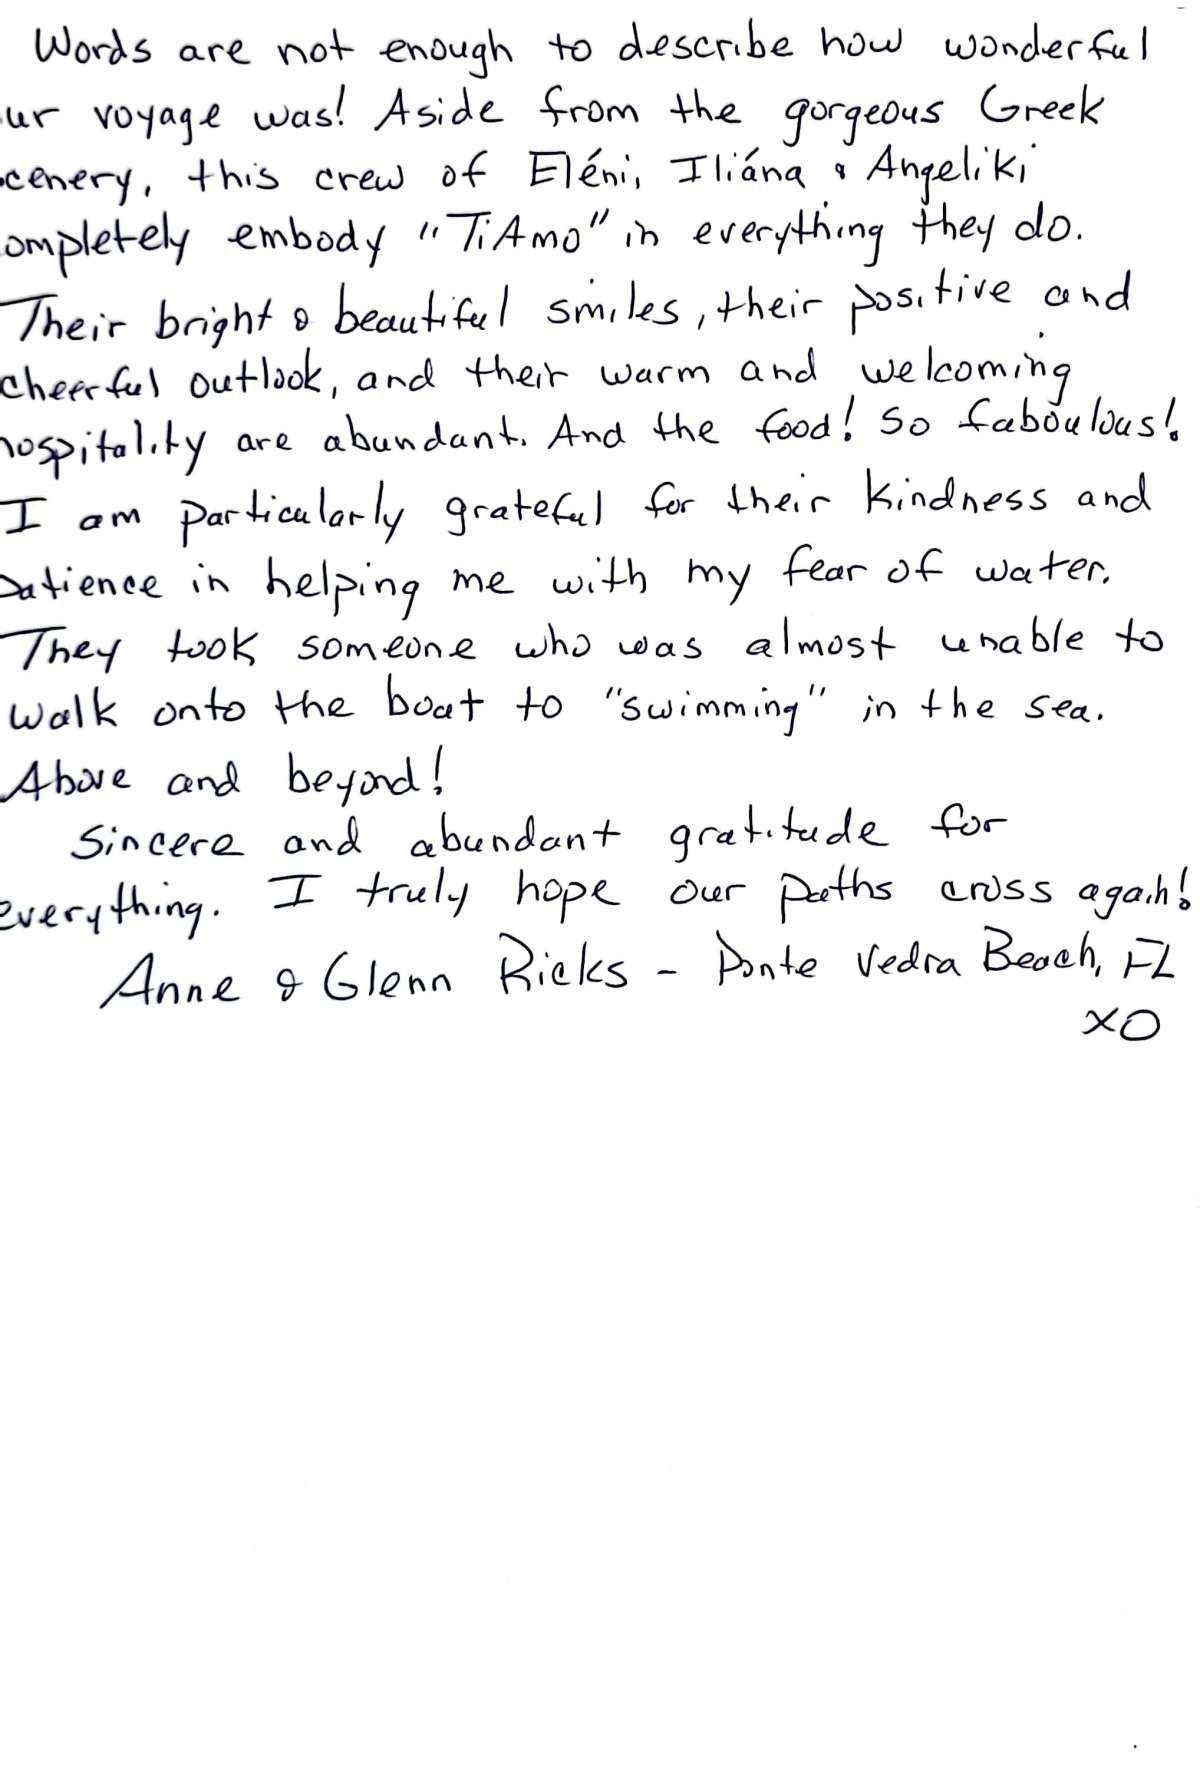 Words are not enough to describe how wonderful
ur voyage was! Aside from the gorgeous Greek
cenery, this crew of Eléni, Iliána & Angeliki
ompletely embody "TiAmo" in everything they do.
Their bright & beautiful smiles, their positive and
cheerful outlook, and their warm and welcoming
hospitality are abundant. And the food! So faboulous!
I am particularly grateful for their kindness and
patience in helping me with my fear of water.
They took someone who was almost unable to
walk onto the boat to "swimming" in the sea.
Above and beyond!
Sincere and abundant gratitude for
everything. I truly hope our paths cross again!
Anne & Glenn Ricks - Ponte Vedra Beach, FL
XO